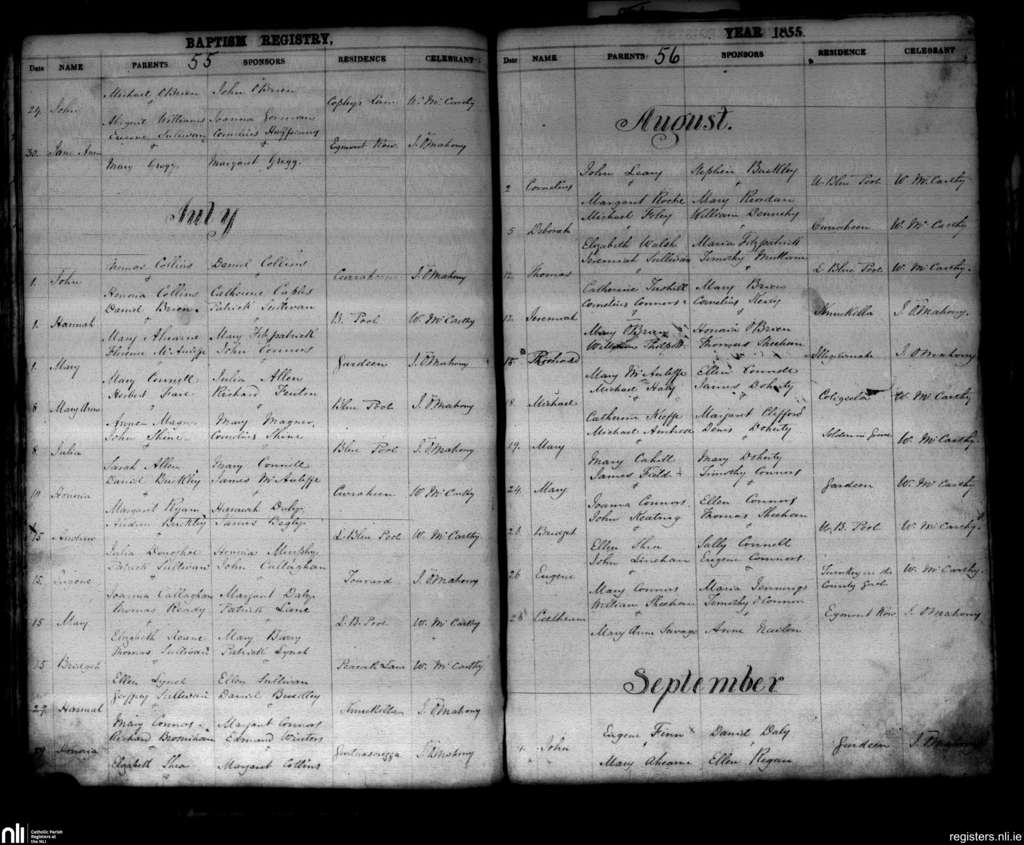 BAPTISM REGISTRY,
55
Date NAME PARENTS SPONSORS RESIDENCE CELEBRANT
Michael O'Brien John O'Brien
24. John Copleys Lane W. McCarthy
Abigail Williams Joanna Gorman
Eugene Sullivan Cornelius
30. Jane Anne Egmont Row J. O'Mahony
Mary Gregg Margaret Gregg.
July
Thomas Collins Daniel Collins
1. John Curraheen J. O'Mahony
Honoria Collins Catherine
Daniel Brien Patrick Sullivan
1. Hannah B. Pool W. McCarthy
Mary Ahearne Mary Fitzpatrick
Florence McAuliffe John Connors
1. Mary Gurdeen J. O'Mahony
Mary Connell Julia Allen
Herbert Richard Fenton
8 Mary Anne Blue Pool J. O'Mahony
Mary Magner
John Shine Cornelius Shine
8. Julia Blue Pool J. O'Mahony
Sarah Allen Mary Connell
Daniel Buckley James McAuliffe
10 Honoria Curraheen W. McCarthy
Margaret Ryan Hannah Daly
Andrew Buckley James Begly
15 Andrew L. Blue Pool W. McCarthy
Julia Donoghoe Honoria Murphy
Patrick Sullivan John Callaghan
15. Eugene J. O'Mahony
Joanna Callaghan Margaret Daly
Thomas Patrick Lane
15 Mary L. B. Pool W. McCarthy
Elizabeth Mary Barry
Thomas Sullivan Patrick Lynch
15 Bridget Peacock Lane W. McCarthy
Ellen Lynch Ellen Sullivan
Geoffrey Sullivan Daniel Buckley
27. Hannah J. O'Mahony
Mary Connor Margaret Connor
Richard Edmund Winters
Honoria J. O'Mahony
Elizabeth Shea Margaret Collins
YEAR 1855.
56
Date NAME PARENTS SPONSORS RESIDENCE CELEBRANT
August.
John Leary Stephen Buckley
2 Cornelius U. Blue Pool W. McCarthy
Margaret Roche Mary Riordan
Michael Foley William Dennehy
5 Deborah Curraheen W. McCarthy
Elizabeth Walsh Maria Fitzpatrick
Jeremiah Sullivan Timothy
12. Thomas L. Blue Pool W. McCarthy
Catherine Mary Brien
Cornelius Connors Cornelius
12. Jeremiah J. O'Mahony.
Mary O'Brien Honoria O'Brien
William Philpott Thomas Sheehan
15 Richard J. O'Mahony
Mary McAuliffe Ellen Connell
Michael James Doherty
18. Michael W. McCarthy
Catherine Keeffe Margaret Clifford
Michael Denis Doherty
19. Mary W. McCarthy
Mary Cahill Mary Doherty
James Field Timothy Connors
24. Mary Gurdeen W. McCarthy
Joanna Connors. Ellen Connors
John Keating Thomas Sheehan
Bridget U. B. Pool W. McCarthy
Ellen Shea Sally Connell
John Linehan Eugene Connors
26 Eugene in the County Gaol W. McCarthy
Mary Connors Maria Jennings
William Sheehan Timothy O'Connor
Catherine Egmont Row J. O'Mahony
Mary Anne Savage Anne Newton
September
Eugene Finn Daniel Daly
4. John Gurdeen J. O'Mahony
Mary Ahearne Ellen Regan
nli
Catholic Parish
Registers at
the NLI
registers.nli.ie